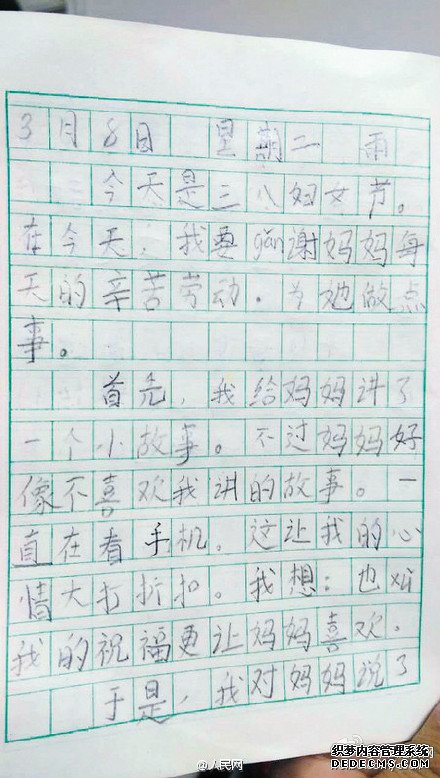 3月8日 星期二 雨
今天是三八妇女节。
在今天，我要gǎn谢妈妈每
天的辛苦劳动。为她做点
事。
首先，我给妈妈讲了
一个小故事。不过妈妈好
像不喜欢我讲的故事。一
直在看手机。这让我的心
情大打折扣。我想：也
我的祝福更让妈妈喜欢。
于是，我对妈妈说了
@人民网
织梦内容管理系统
DEDECMS.COM